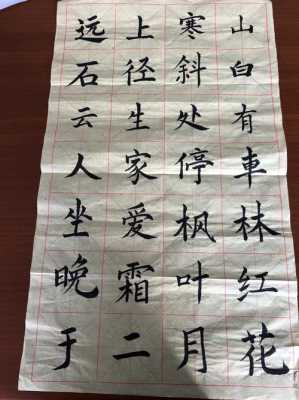 远上寒山
石径斜白
云生处有
人家停車
坐爱枫林
晚霜叶红
于二月花